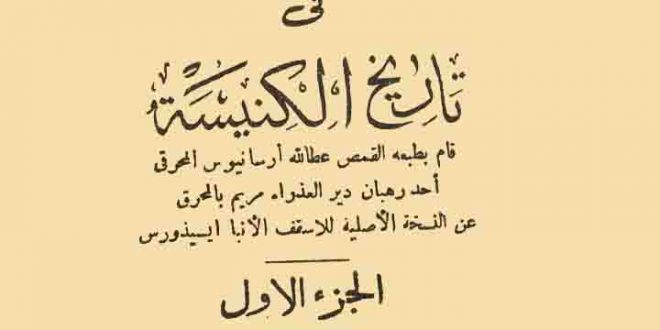 في
تاريخ الكنيسة
قام بطبعه القمص عطالله أرسانيوس المحرقى
أحد رهبان دير العذراء مريم بالمحرق
عن النسخة الأصلية للاسقف الأنبا ايسيذورس
الجزء الاول